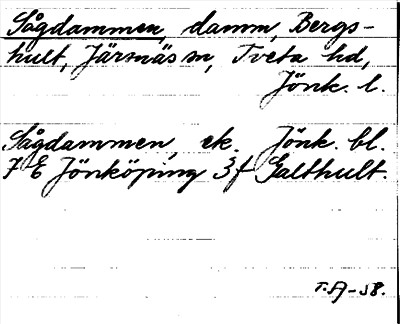 Sågdammen, damm, Bergs-
hult, Järsnäs sn, Tveta hd,
Jönk. l.
Sågdammen, ek. Jönk. bl.
7 E Jönköping 3f Galthult.
T.A-58.